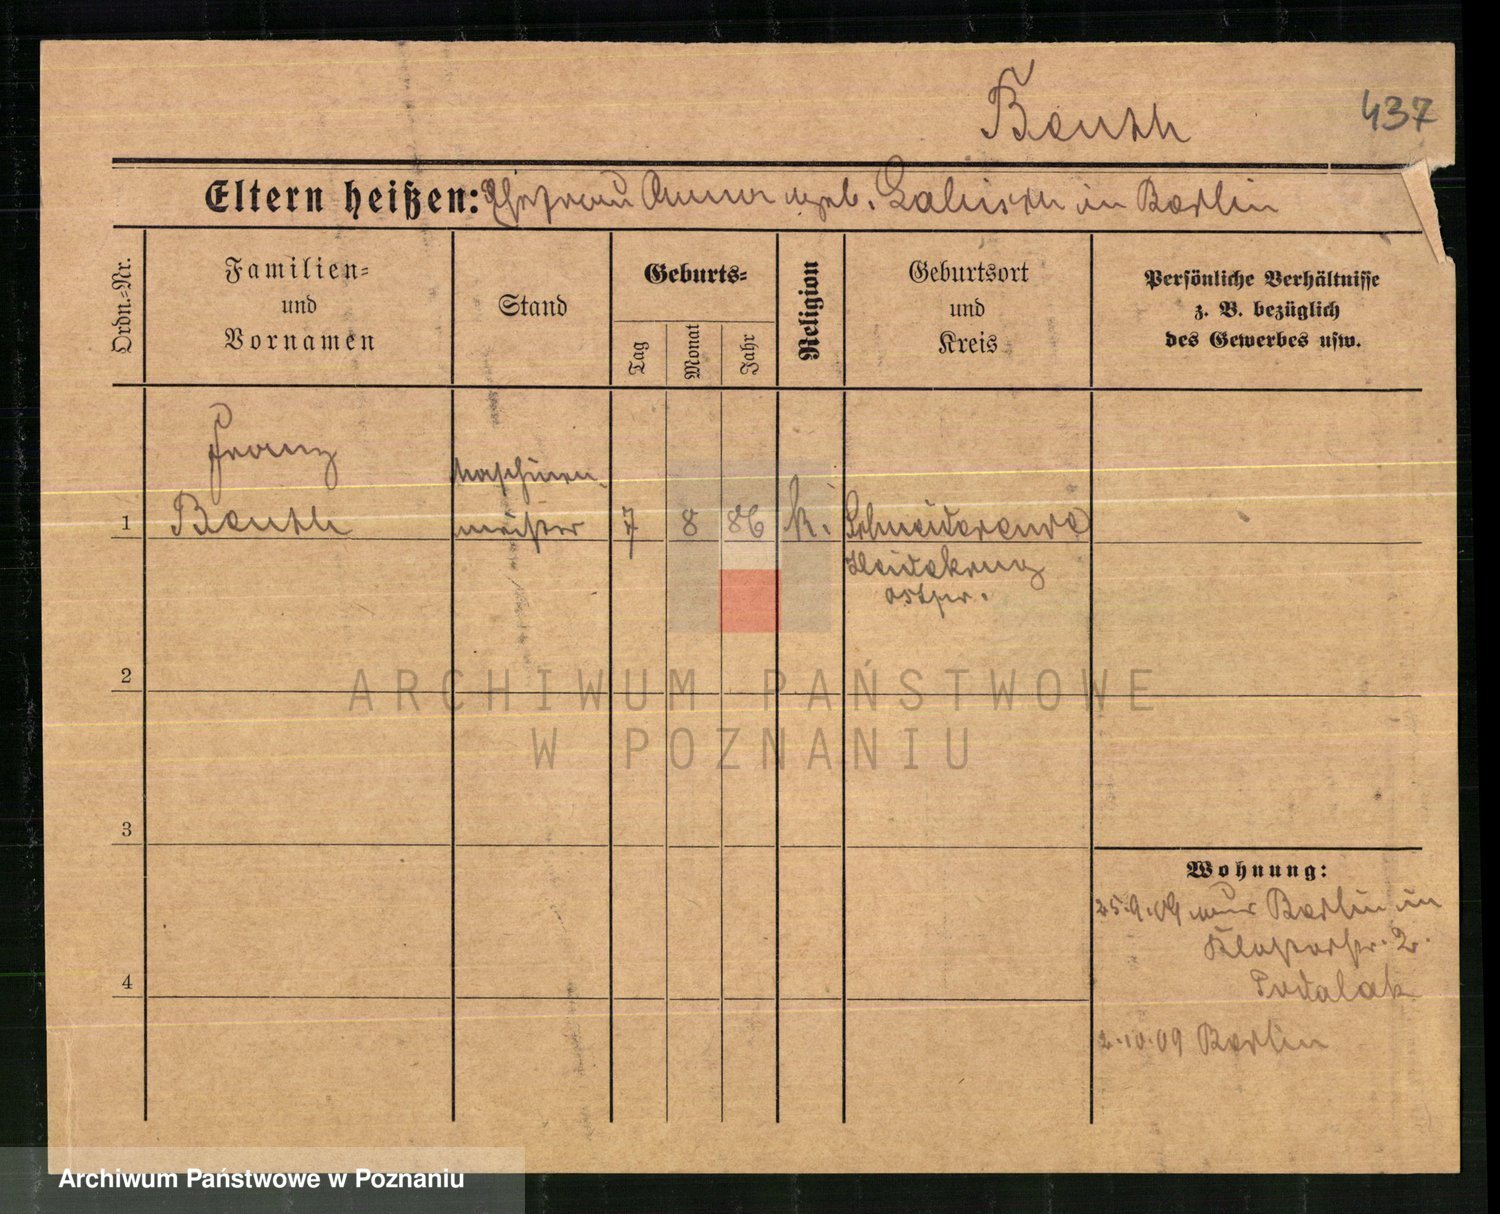 Beuth
437
Eltern heißen: Ehefrau Anna geb. in Berlin
Ordn.-Nr.
Familien-
und
Vornamen
Stand
Geburts-
Tag
Monat
Jahr
Religion
Geburtsort
und
Kreis
Persönliche Verhältnisse
z. B. bezüglich
des Gewerbes usw.
Franz
Beuth
Maschinen
meister
7
8
86
k.
Heidekrug
Ostpr.
1
2
3
4
ARCHIWUM PAŃSTWOWE
W POZNANIU
Wohnung:
25.9.09 Berlin in
Klosterstr. 2.
2.10.09 Berlin
Archiwum Państwowe w Poznaniu